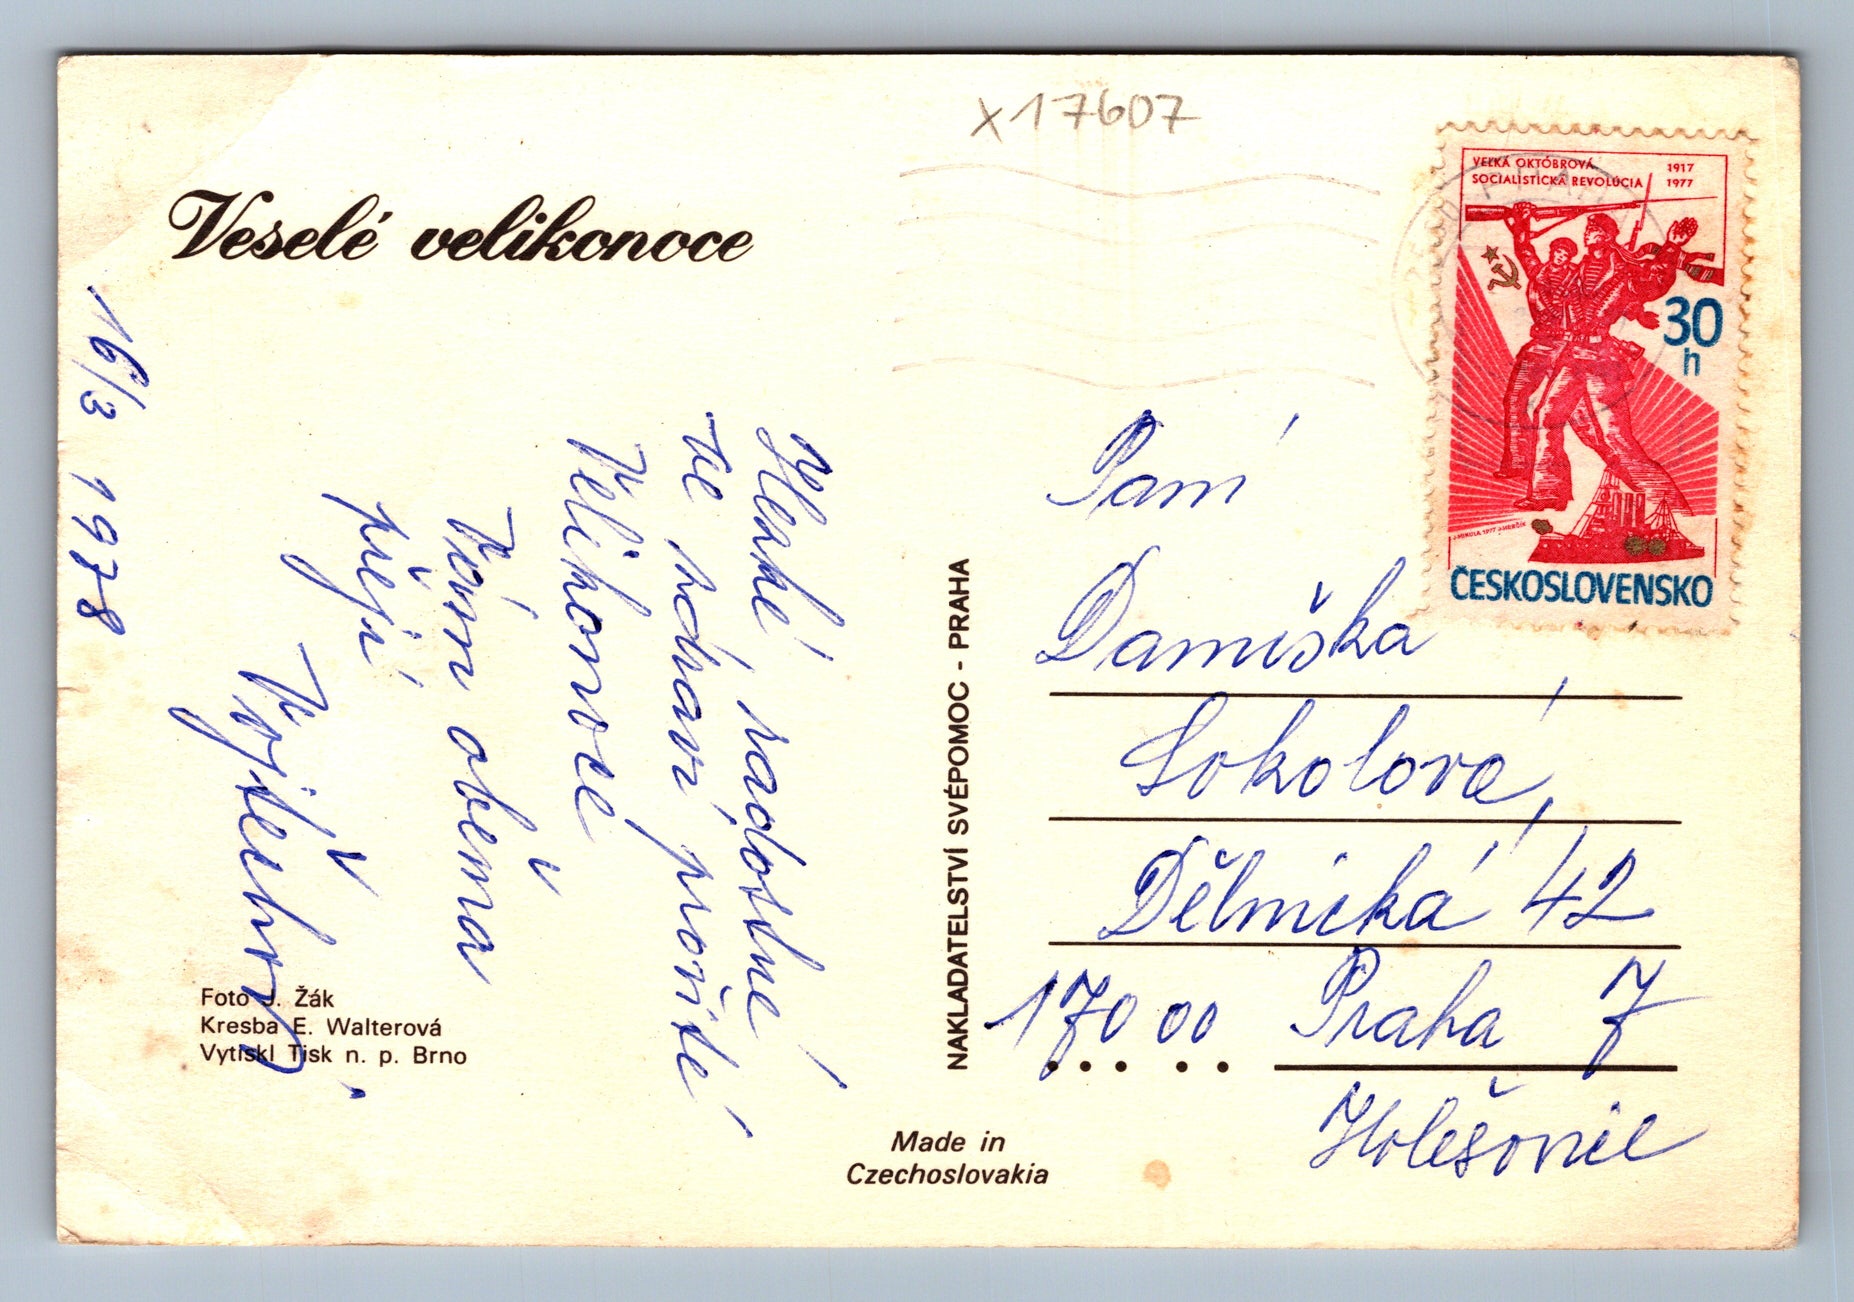 x17607
VEĽKÁ OKTÓBROVÁ 1917
SOCIALISTICKÁ REVOLÚCIA 1977
30
h
J. MIKULA 1977 J. HERČÍK
ČESKOSLOVENSKO
Veselé velikonoce
16/3 1978
Hezké, radostné
ve zdraví prožité
Velikonoce
Vám oběma
přejí
Vojtěchovi.
Foto J. Žák
Kresba E. Walterová
Vytiskl Tisk n. p. Brno
NAKLADATELSTVÍ SVÉPOMOC - PRAHA
Made in
Czechoslovakia
Paní
Danuška
Sokolová,
Dělnická 42
170 00 Praha 7
Holešovice